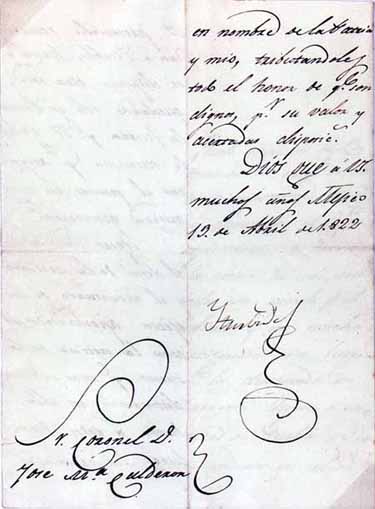 en nombre de la Patria
y mio, tributandoles
todo el honor de qe. son
dignos, pr. su valor y
acertadas disposic.s
Dios gue. á V.S.
muchos años Mexico
19. de Abril de 1.822
Yturbide
Sr. Coronel D.
Jose Ma. Calderon